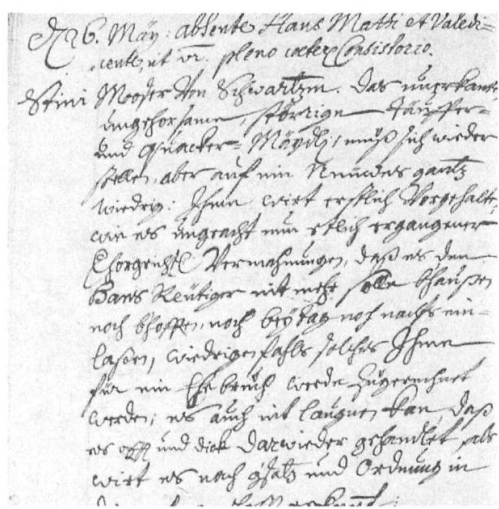 26. Maÿ: absente Hans Matti et Valedi-
cente ut vr. pleno cætero Consistorio.
Stini Mooser von Schwartzm. das unerkante
ungehorsame, störrige Täuffer-
und Quacker-Mäÿdli, muß sich wieder
stellen, aber auf ein Neuwes gantz
wiedrig: Ihme wirt erstlich vorgehalte,
wie es ungeacht nun etlich ergangener
Chorgrichtl. Vermahnungen, daß es den
Hans Reütiger nit mehr solle bhausen
noch bhoffen, noch beÿ tag noch nachts ein-
laßen, wiedrigenfahls solches Ihme
für ein Ehebruch werde zugerechnet
werden; es auch nit laugnen kan daß
es offt und dick darwieder gehandlet, als
wirt es nach gsatz und Ordnung in